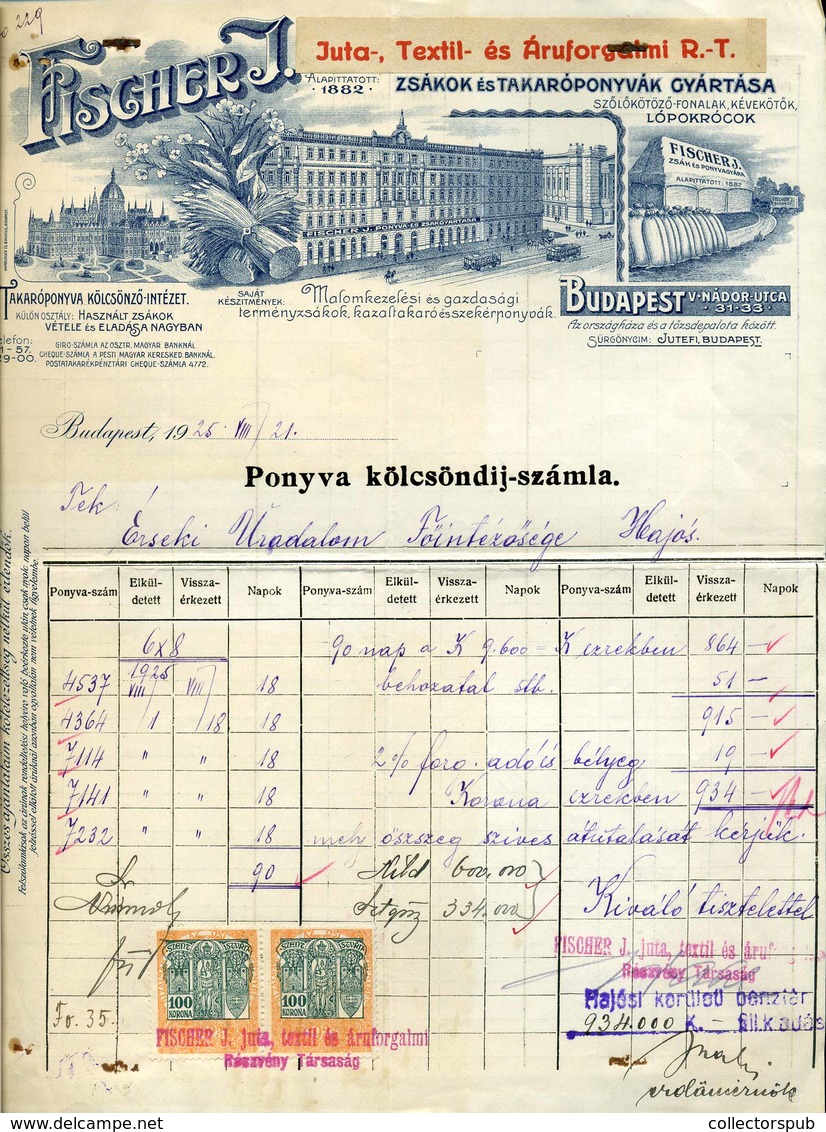 229
FISCHER J.
Juta-, Textil- és Áruforgalmi R.-T.
ALAPITTATOTT:
· 1882 ·
ZSÁKOK ÉS TAKARÓPONYVÁK GYÁRTÁSA
SZŐLŐKÖTÖZŐ-FONALAK, KÉVEKÖTŐK,
LÓPOKRÓCOK
FISCHER J.
ZSÁK ÉS PONYVAGYÁRA
ALAPITTATOTT: 1882
FISCHER J. PONYVA-ÉS ZSÁKGYÁRTÁSA
TAKARÓPONYVA KÖLCSÖNZŐ-INTÉZET.
KÜLÖN OSZTÁLY: HASZNÁLT ZSÁKOK
VÉTELE ÉS ELADÁSA NAGYBAN
SAJÁT
KÉSZITMÉNYEK:
Malomkezelési és gazdasági
terményzsákok, kazaltakaró és szekérponyvák.
BUDAPEST V. NÁDOR-UTCA
31-33.
Az országháza és a tőzsdepalota között.
SÜRGÖNYCIM: JUTEFI, BUDAPEST.
elefon:
1-57.
29-00.
GIRO-SZÁMLA AZ OSZTR. MAGYAR BANKNÁL
CHEQUE-SZÁMLA A PESTI MAGYAR KERESKED. BANKNÁL.
POSTATAKARÉKPÉNZTÁRI CHEQUE-SZÁMLA 4772.
Budapest, 1925 VIII/21.
Ponyva kölcsöndij-számla.
Tek.
Érseki Uradalom Főintézősége Hajós.
Összes ajánlataim kötelezettség nélkül értendők.
Felszólamlások az árúnak rendeltetési helyére való beérkezte után csak nyolc napon belül
Ponyva-szám Elkül-detett Vissza-érkezett Napok Ponyva-szám Elkül-detett Vissza-érkezett Napok Ponyva-szám Elkül-detett Vissza-érkezett Napok
6x8 90 nap a K 9.600 = K ezrekben 864 -
1925
4537 VIII/ VIII/ 18 behozatal stb. 51 -
4364 1 18 18 915 -
7114 " " 18 2% forg. adó és bélyeg 19 -
7141 " " 18 Korona ezrekben 934 -
7232 " " 18 mely öszszeg szives átutalását kérjük.
90 Hild 600.000
334.000 Kiváló tisztelettel
FISCHER J. juta, textil és áruforgalmi
Részvény Társaság
Hajósi kerületi pénztár
934.000 K.-
100
KORONA
100
KORONA
SZENT ISTVÁN
SZENT ISTVÁN
FISCHER J. juta, textil és áruforgalmi
Részvény Társaság
Fo. 35.
erdőmérnök
collectorspub